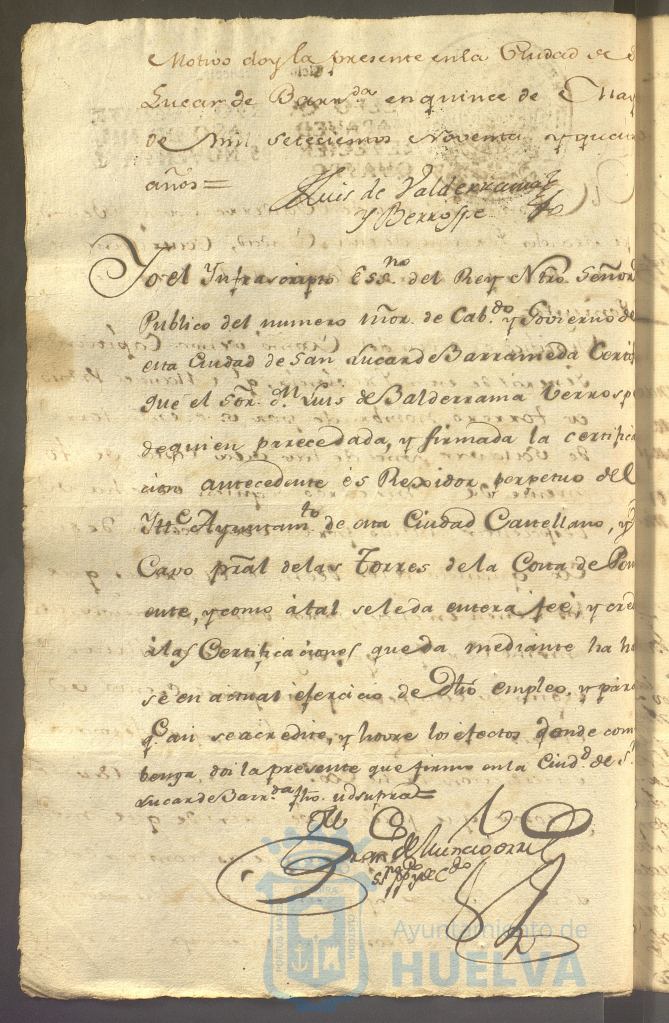 Motivo doy la presente en la Ciudad de
Lucar de Barr.da en quince de May
de mil setecientos Noventa y quat
años=
Luis de Valderrama
y Berrospe
Yo el Infrascripto Ess.no del Rey Ntro. Señor
Publico del numero mor. de Cab.do y Govierno de
esta Ciudad de San Lucar de Barrameda Certi
que el Sor. d.n Luis de Balderrama Verrospe
de quien parece dada, y firmada la certifica
cion antecedente es Rexidor perpetuo del
Itt.e Ayuntam.to de esta Ciudad Castellano, y
Cavo pral de las Torres de la Costa de Pon
ente, y como á tal se le da entera feé, y cred
á las Certificaciones que da mediante ha ha
se en actual exercicio de dho empleo, y para
q.e asi se acredite, y hovre los efectos donde com
benga, doi la presente que firmo en la Ciud.d de S.n
Lucar de Barr.da fho. ud supra=
Ayuntamiento de
HUELVA